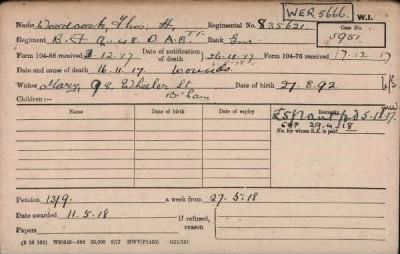 WER 5666. W.I.
Name Woodcock, Thos. H. Regimental No. 835621 Case No.
Regiment R.F.A. 48 D.A.C. Rank Gnr. 5951
Form 104-88 received 3.12.17 Date of notification of death 26.11.17 Form 104-76 received 17.12.17
Date and cause of death 16.11.17 Wounds.
Widow Mary, Wheeler St Date of birth 27.8.92
B'ham
Children:—
Name Date of birth Date of expiry Remarks
5.12.17
29.4.18
No. for whom S.A. is paid
Pension 13/9 a week from 27.5.18
Date awarded 11.5.18 If refused, reason
Papers